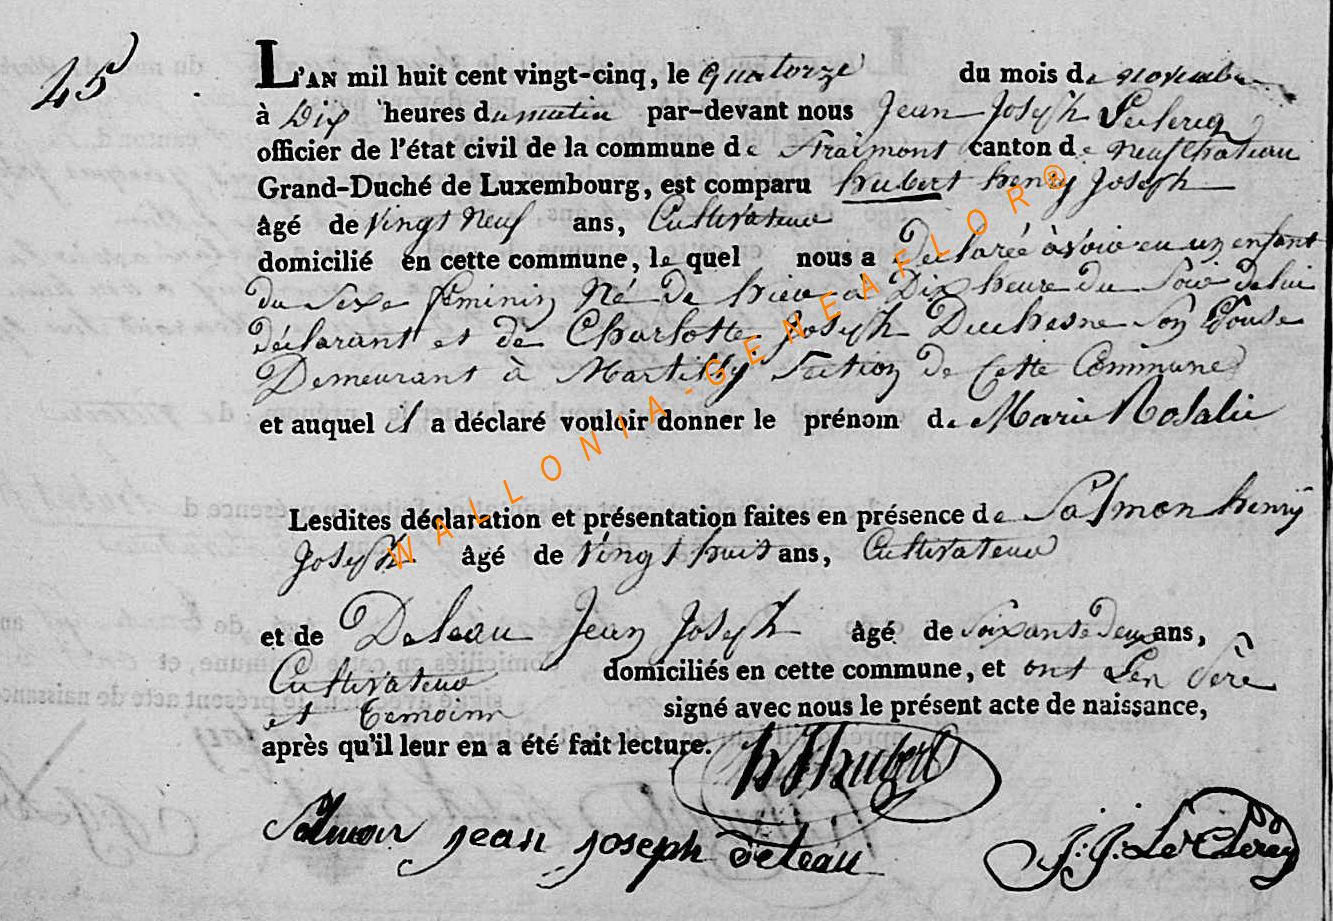 45
L'AN mil huit cent vingt-cinq, le quatorze du mois de novembre
à Dix heures du matin par-devant nous Jean Joseph Leclercq
officier de l'état civil de la commune de Straimont canton de neufchateau
Grand-Duché de Luxembourg, est comparu hubert henry Joseph
âgé de vingt neuf ans, Cultivateur
domicilié en cette commune, le quel nous a Declarée avoir eu un enfant
du Sexe féminin Né de hier à Dix heure du Soir de lui
déclarant et de Charlotte Joseph Duchesne Son Epouse
Demeurant à Martilly Section De Cette Commune
et auquel il a déclaré vouloir donner le prénom de Marie Rosalie
Lesdites déclaration et présentation faites en présence de Salmon henry
Joseph âgé de vingt huit ans, Cultivateur
et de Deleau Jean Joseph âgé de Soixante deux ans,
Cultivateur domiciliés en cette commune, et ont Len Père
et Temoins signé avec nous le présent acte de naissance,
après qu'il leur en a été fait lecture. h J hubert
Salmon jean joseph deleau J. J. Le Clercq
WALLONIA-GENEAFLOR®